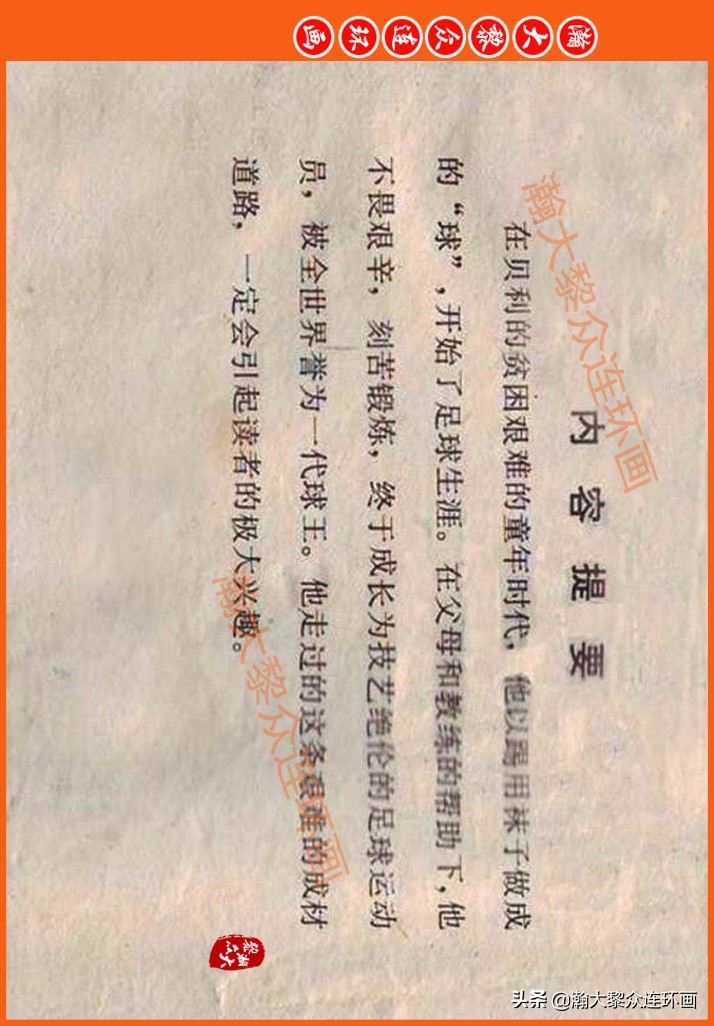 瀚大黎众连环画
内容提要
在贝利的贫困艰难的童年时代，他以踢用袜子做成
的“球”，开始了足球生涯。在父母和教练的帮助下，他
不畏艰辛，刻苦锻炼，终于成长为技艺绝伦的足球运动
员，被全世界誉为一代球王。他走过的这条艰难的成材
道路，一定会引起读者的极大兴趣。
瀚大黎众连环画
瀚大黎众连环画
瀚大黎众
头条 @瀚大黎众连环画